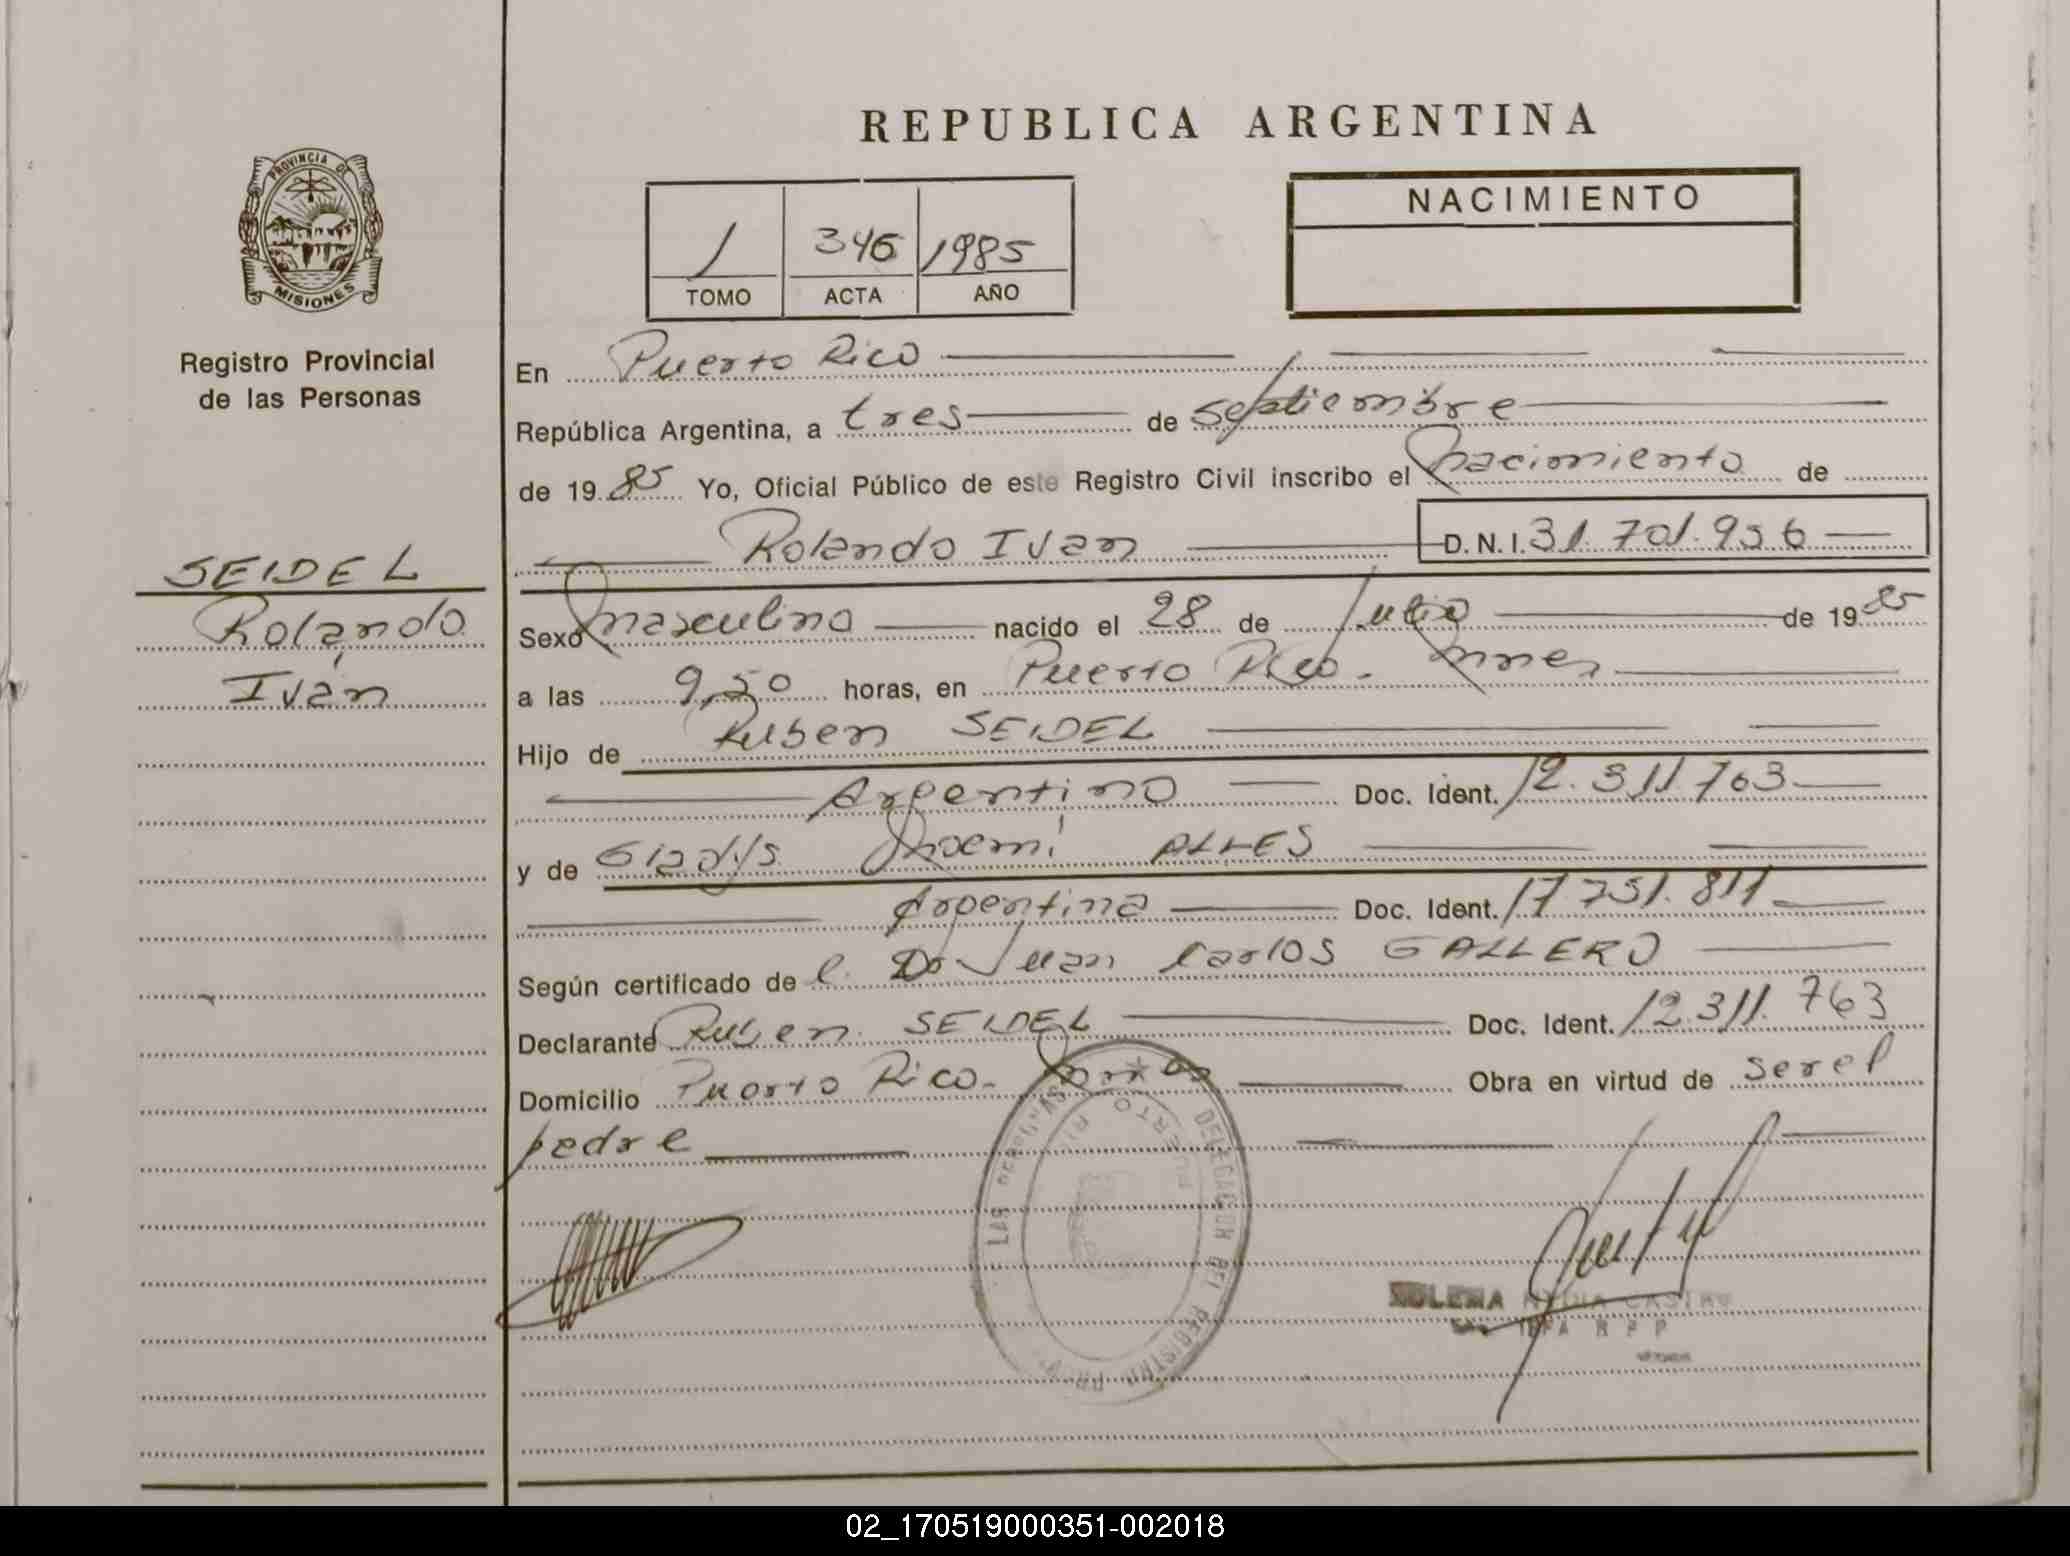 REPUBLICA ARGENTINA
PROVINCIA DE
MISIONES
Registro Provincial
de las Personas
SEIDEL
Rolando
Iván
1 346 1985
TOMO ACTA AÑO
NACIMIENTO
En Puerto Rico
República Argentina, a tres de septiembre
de 19 85 Yo, Oficial Público de este Registro Civil inscribo el nacimiento de
Rolando Ivan D.N.I. 31.701.956
Sexo masculino nacido el 28 de Julio de 19 85
a las 9,50 horas, en Puerto Rico. Mnes
Hijo de Ruben SEIDEL
Argentino Doc. Ident. 12.311.763
y de Gladys Noemi ALLES
Argentina Doc. Ident. 17.751.811
Según certificado de l Dr Juan Carlos GALLERO
Declarante Ruben SEIDEL Doc. Ident. 12.311.763
Domicilio Puerto Rico. Obra en virtud de ser el
padre
DELEGACION DEL REGISTRO PROV. LAS PERSONAS
PUERTO RI
CASTRO
R P P
02_170519000351-002018